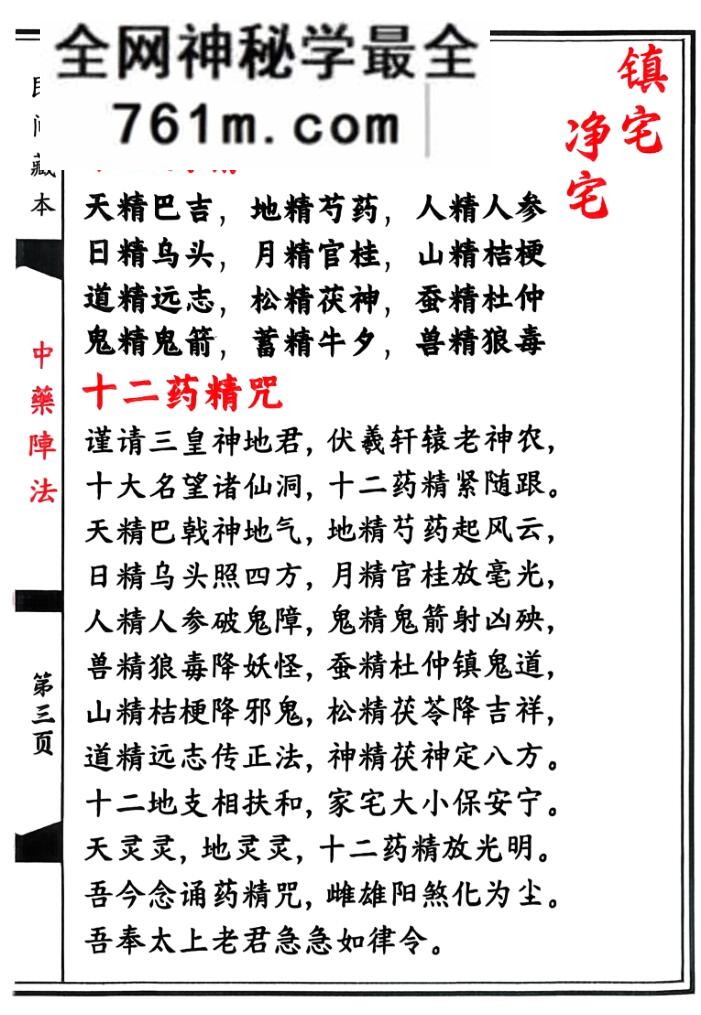 全网神秘学最全
761m.com
镇宅
净宅
天精巴吉，地精芍药，人精人参
日精乌头，月精官桂，山精桔梗
道精远志，松精茯神，蚕精杜仲
鬼精鬼箭，蓄精牛夕，兽精狼毒
十二药精咒
谨请三皇神地君，伏羲轩辕老神农，
十大名望诸仙洞，十二药精紧随跟。
天精巴戟神地气，地精芍药起风云，
日精乌头照四方，月精官桂放毫光，
人精人参破鬼障，鬼精鬼箭射凶殃，
兽精狼毒降妖怪，蚕精杜仲镇鬼道，
山精桔梗降邪鬼，松精茯苓降吉祥，
道精远志传正法，神精茯神定八方。
十二地支相扶和，家宅大小保安宁。
天灵灵，地灵灵，十二药精放光明。
吾今念诵药精咒，雌雄阳煞化为尘。
吾奉太上老君急急如律令。
藏本
中藥陣法
第三页